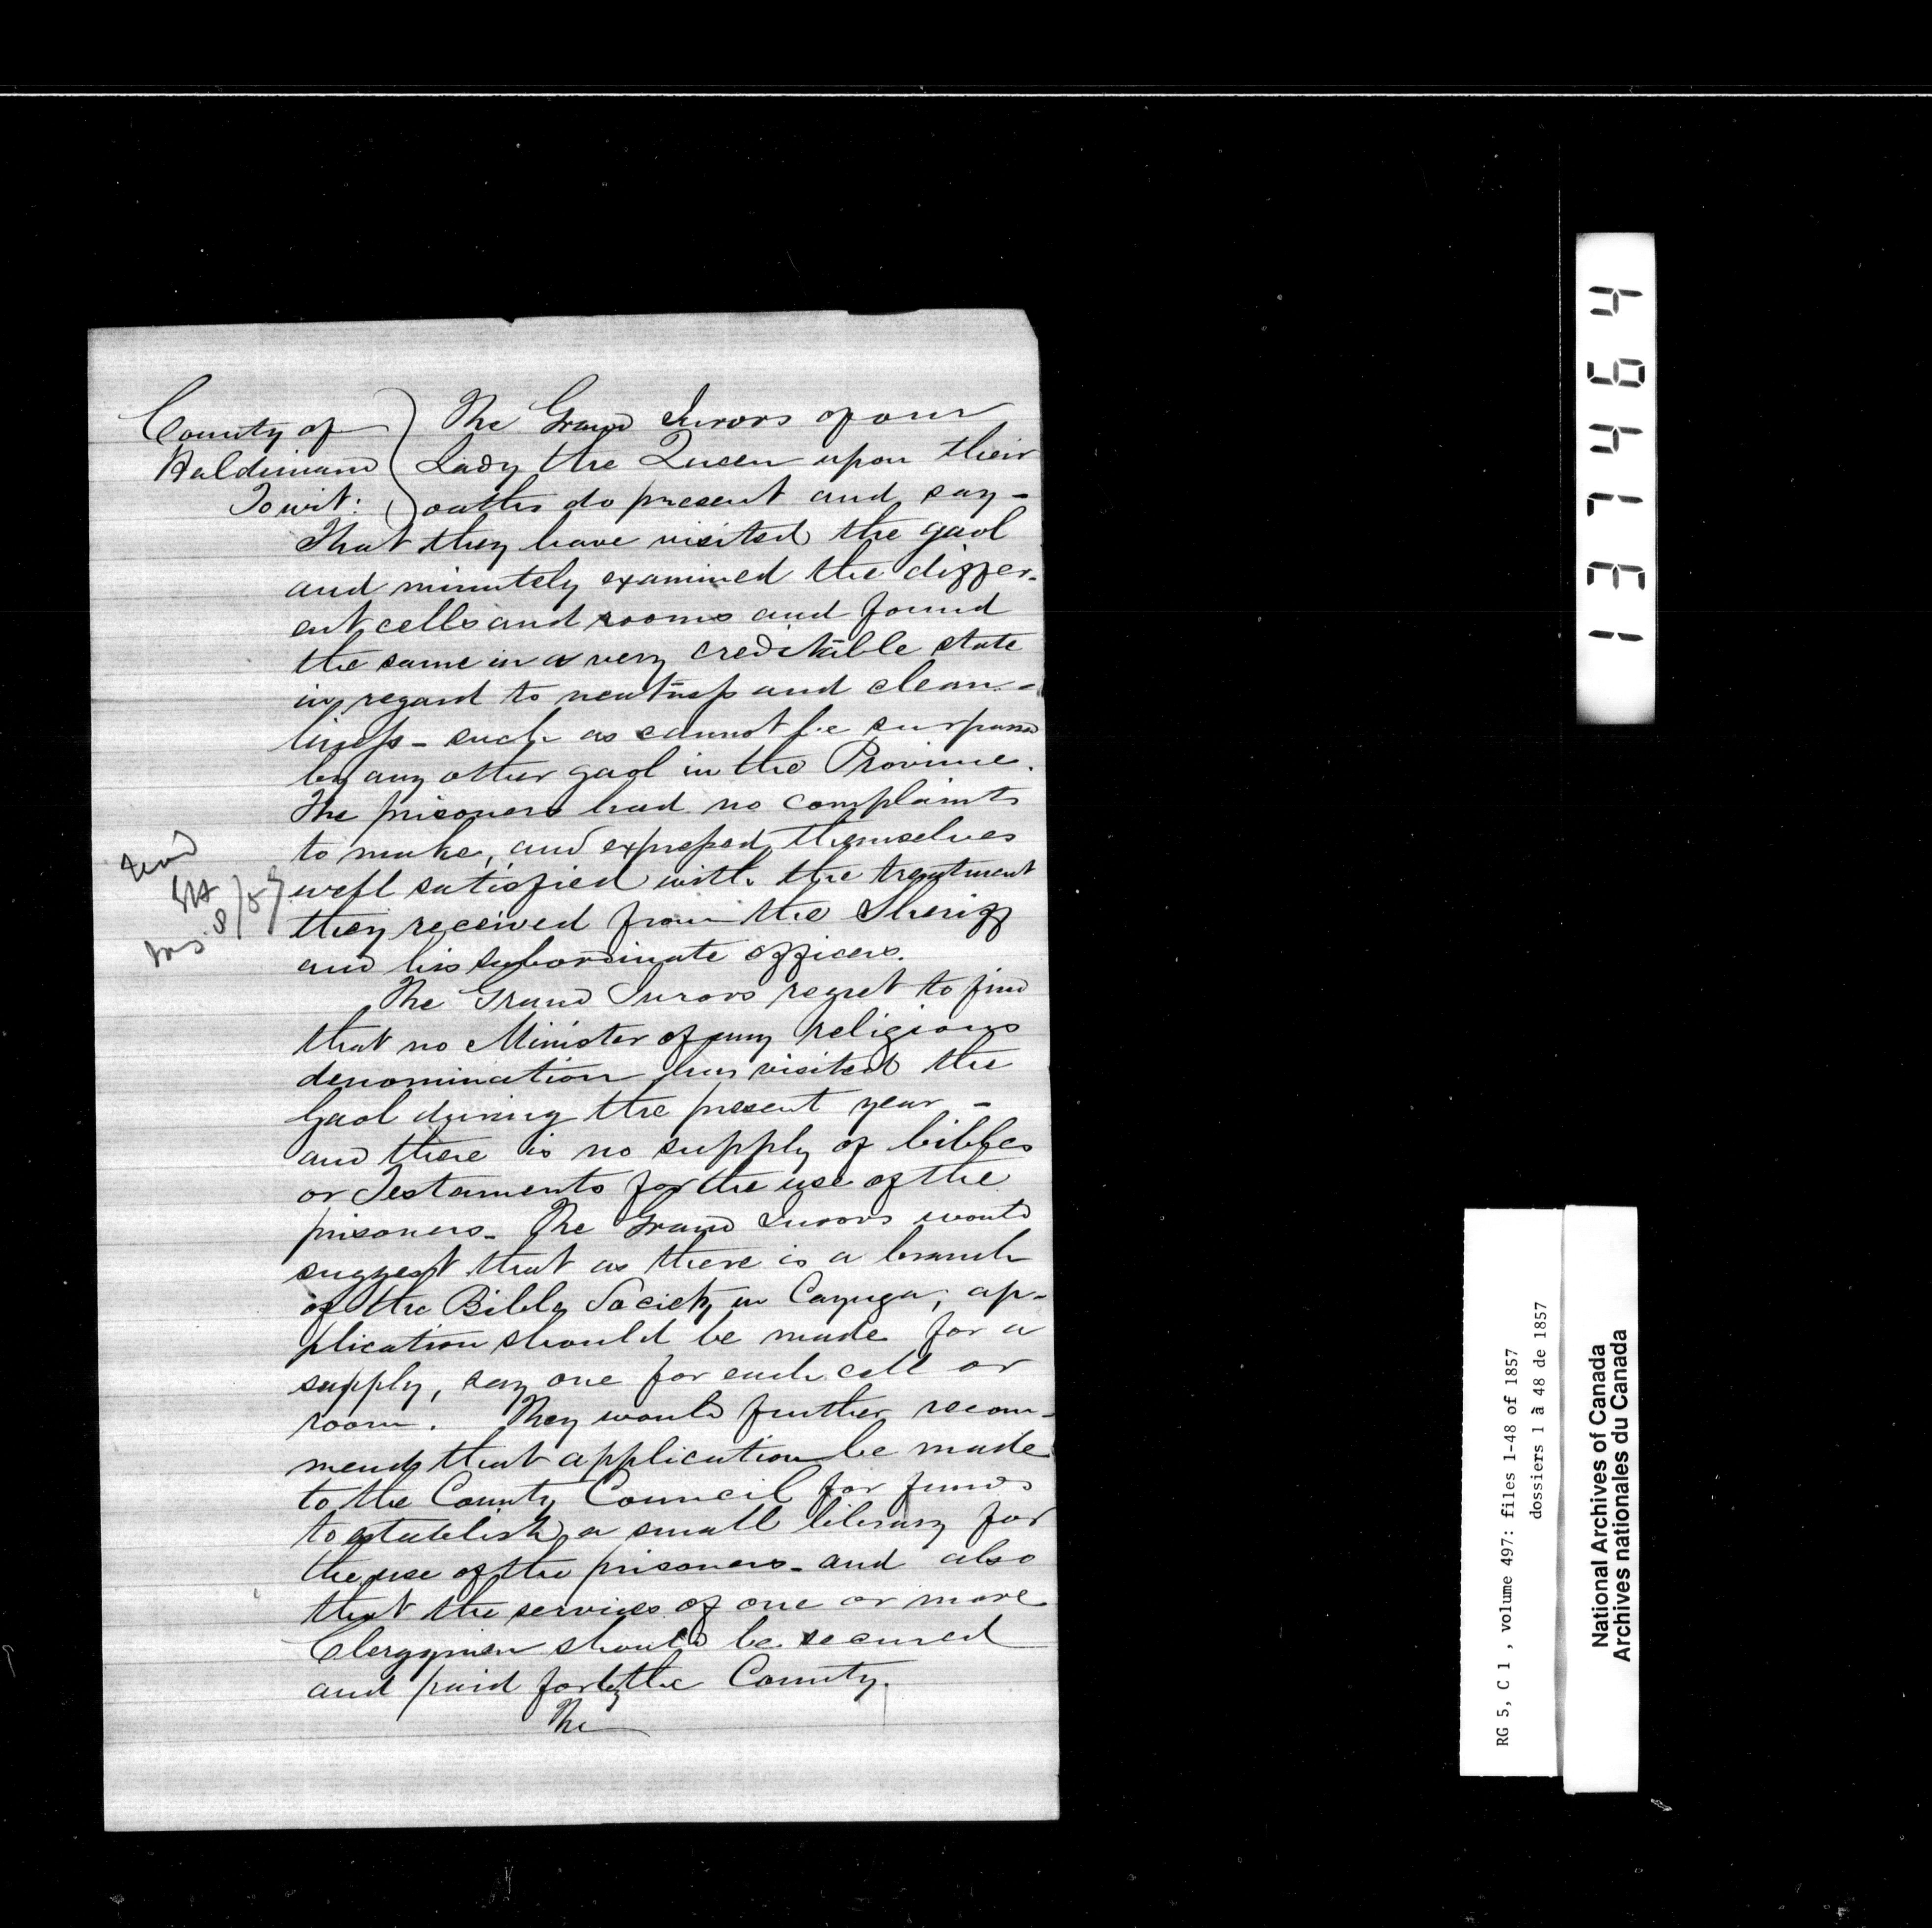 County of
Haldimand
Towit:
The Grand Jurors of our
Lady the Queen upon their
oaths do present and say -
That they have visited the gaol
and minutely examined the differ-
ent cells and rooms and found
the same in a very creditable state
in regard to neatness and clean-
liness - such as cannot be surpassed
by any other gaol in the Province.
The prisoners had no complaints
to make, and expressed themselves
well satisfied with the treatment
they received from the Sheriff
and his subordinate officers.
The Grand Jurors regret to find
that no Minister of any religious
denomination has visited the
Gaol during the present year -
and there is no supply of bibles
or Testaments for the use of the
prisoners - The Grand Jurors would
suggest that as there is a branch
of the Bible Society in Cayuga, ap-
plication should be made for a
supply, say one for each cell or
room. They would further recom-
mend that application be made
to the County Council for funds
to establish a small library for
the use of the prisoners - and also
that the services of one or more
Clergymen should be secured
and paid for by the County.
The
1 3 7 4 6 4
RG 5, C 1 , volume 497: files 1-48 of 1857
dossiers 1 à 48 de 1857
National Archives of Canada
Archives nationales du Canada